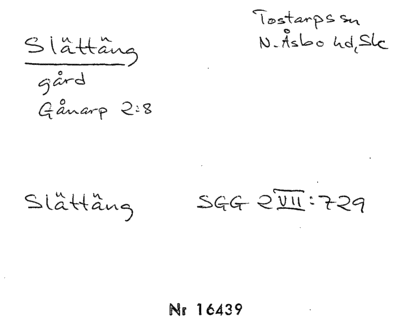 Slättäng
Tostarps sn
N. Åsbo hd, Sk
gård
Gånarp 2:8
Slättäng SGG 2 VII:729
Nr 16439